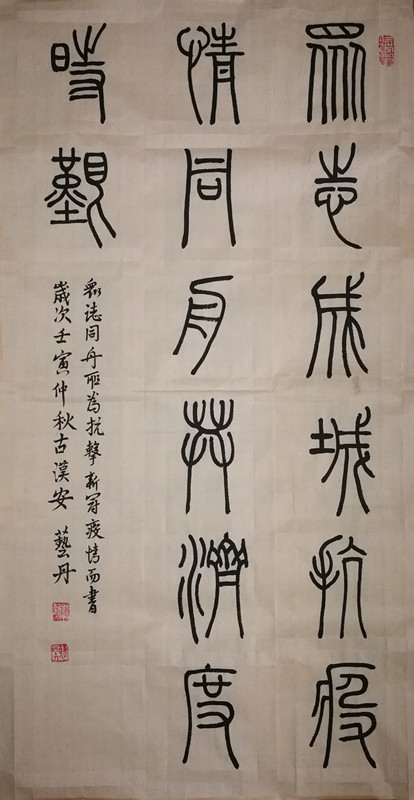 眾志成城抗疫
情同舟共濟度
時艱
眾誌同舟所為抗擊新冠疫情而書
歲次壬寅仲秋古漢安 藝丹